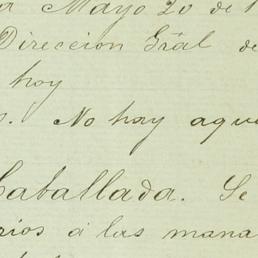 Mayo 20 de 1
Direccion Gral de
hoy
No hay aqu
Caballada. Se
rios á las mana